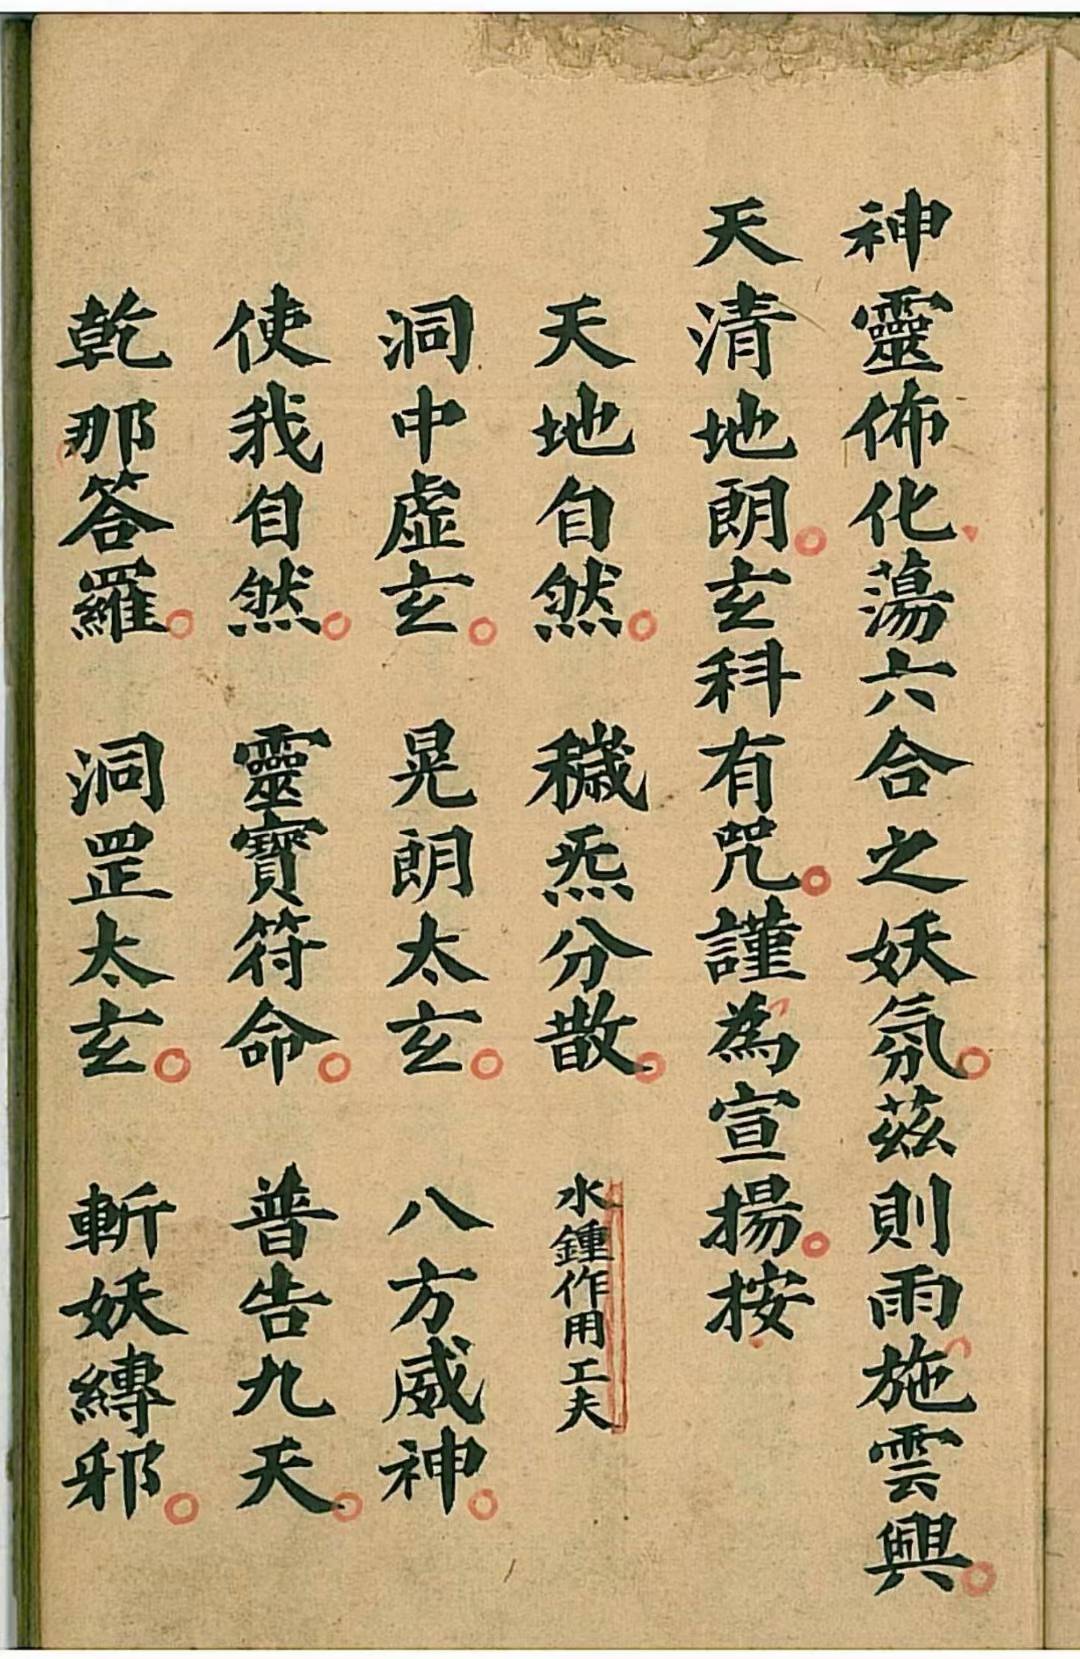 神靈佈化蕩六合之妖氛茲則雨施雲興
天清地朗玄科有咒謹為宣揚按
天地自然 穢炁分散 水鍾作用工夫
洞中虛玄 晃朗太玄 八方威神
使我自然 靈寶符命 普告九天
乾那答羅 洞罡太玄 斬妖縛邪